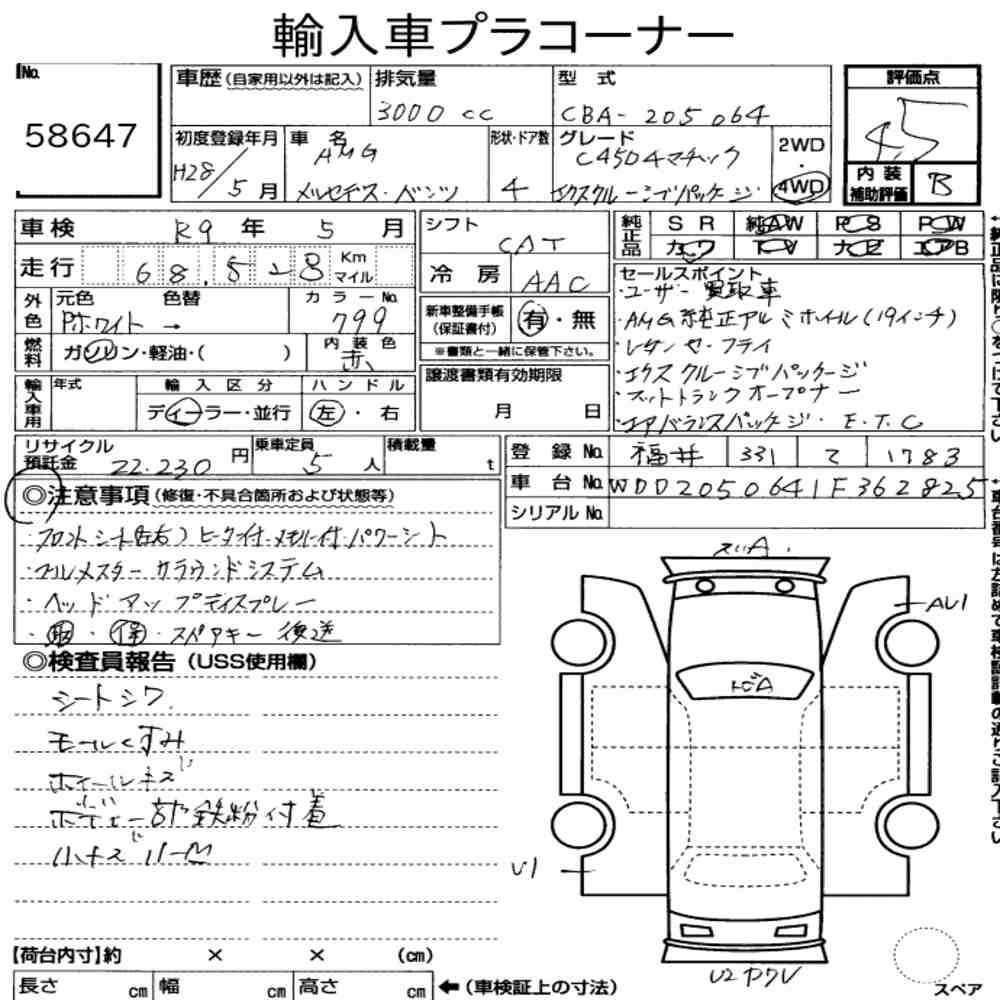 輸入車プラコーナー
No.
58647
車歴(自家用以外は記入)
排気量
3000 cc
型 式
CBA-205064
評価点
4.5
内装補助評価
B
初度登録年月
H28/5月
車 名
AMG
メルセデス・ベンツ
形状・ドア数
4
グレード
C450 4マチック
エクスクルーシブパッケージ
2WD
・
4WD
車検 R9 年 5 月
走行 68,528 Km マイル
外色
元色 色替
Pホワイト →
カラーNo.
799
燃料
ガソリン・軽油・( )
内装色
赤
輸入車用
年式
輸入区分
ディーラー・並行
ハンドル
左・右
シフト
CAT
冷房 AAC
新車整備手帳(保証書付)
有・無
※書類と一緒に保管下さい。
譲渡書類有効期限
月 日
純正品
SR 純AW PS PW
カワ TV ナビ エアB
セールスポイント
・ユーザー買取車
・AMG純正アルミホイル(19インチ)
・レダンセーフティ
・エクスクルーシブパッケージ
・フットトランクオープナー
・エアバランスパッケージ・E.T.C
リサイクル預託金 22.230 円
乗車定員 5 人
積載量 t
登録No. 福井 331 て 1783
車台No. WDD2050641F362825
シリアルNo.
◎注意事項(修復・不具合箇所および状態等)
・フロントシート(左右)ヒーター付・メモリー付・パワーシート
・ブルメスターサラウンドシステム
・ヘッドアップディスプレー
・取・保・スペアキー後送
◎検査員報告(USS使用欄)
シートシワ
モールくすみ
ホイールキズ
ボディー一部鉄粉付着
小キズ
【荷台内寸】約 × × (cm)
長さ cm 幅 cm 高さ cm
←(車検証上の寸法)
スリA
AU1
トビA
U1
U2 ヤクレ
スペア